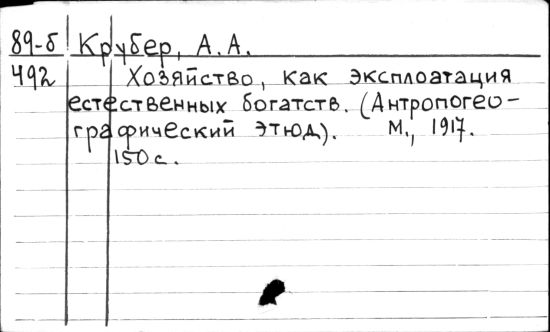 89-б Крубер, А. А.
492 Хозяйство, как эксплоатация
естественных богатств. (Антропогео-
графический этюд). М., 1917.
150 с.